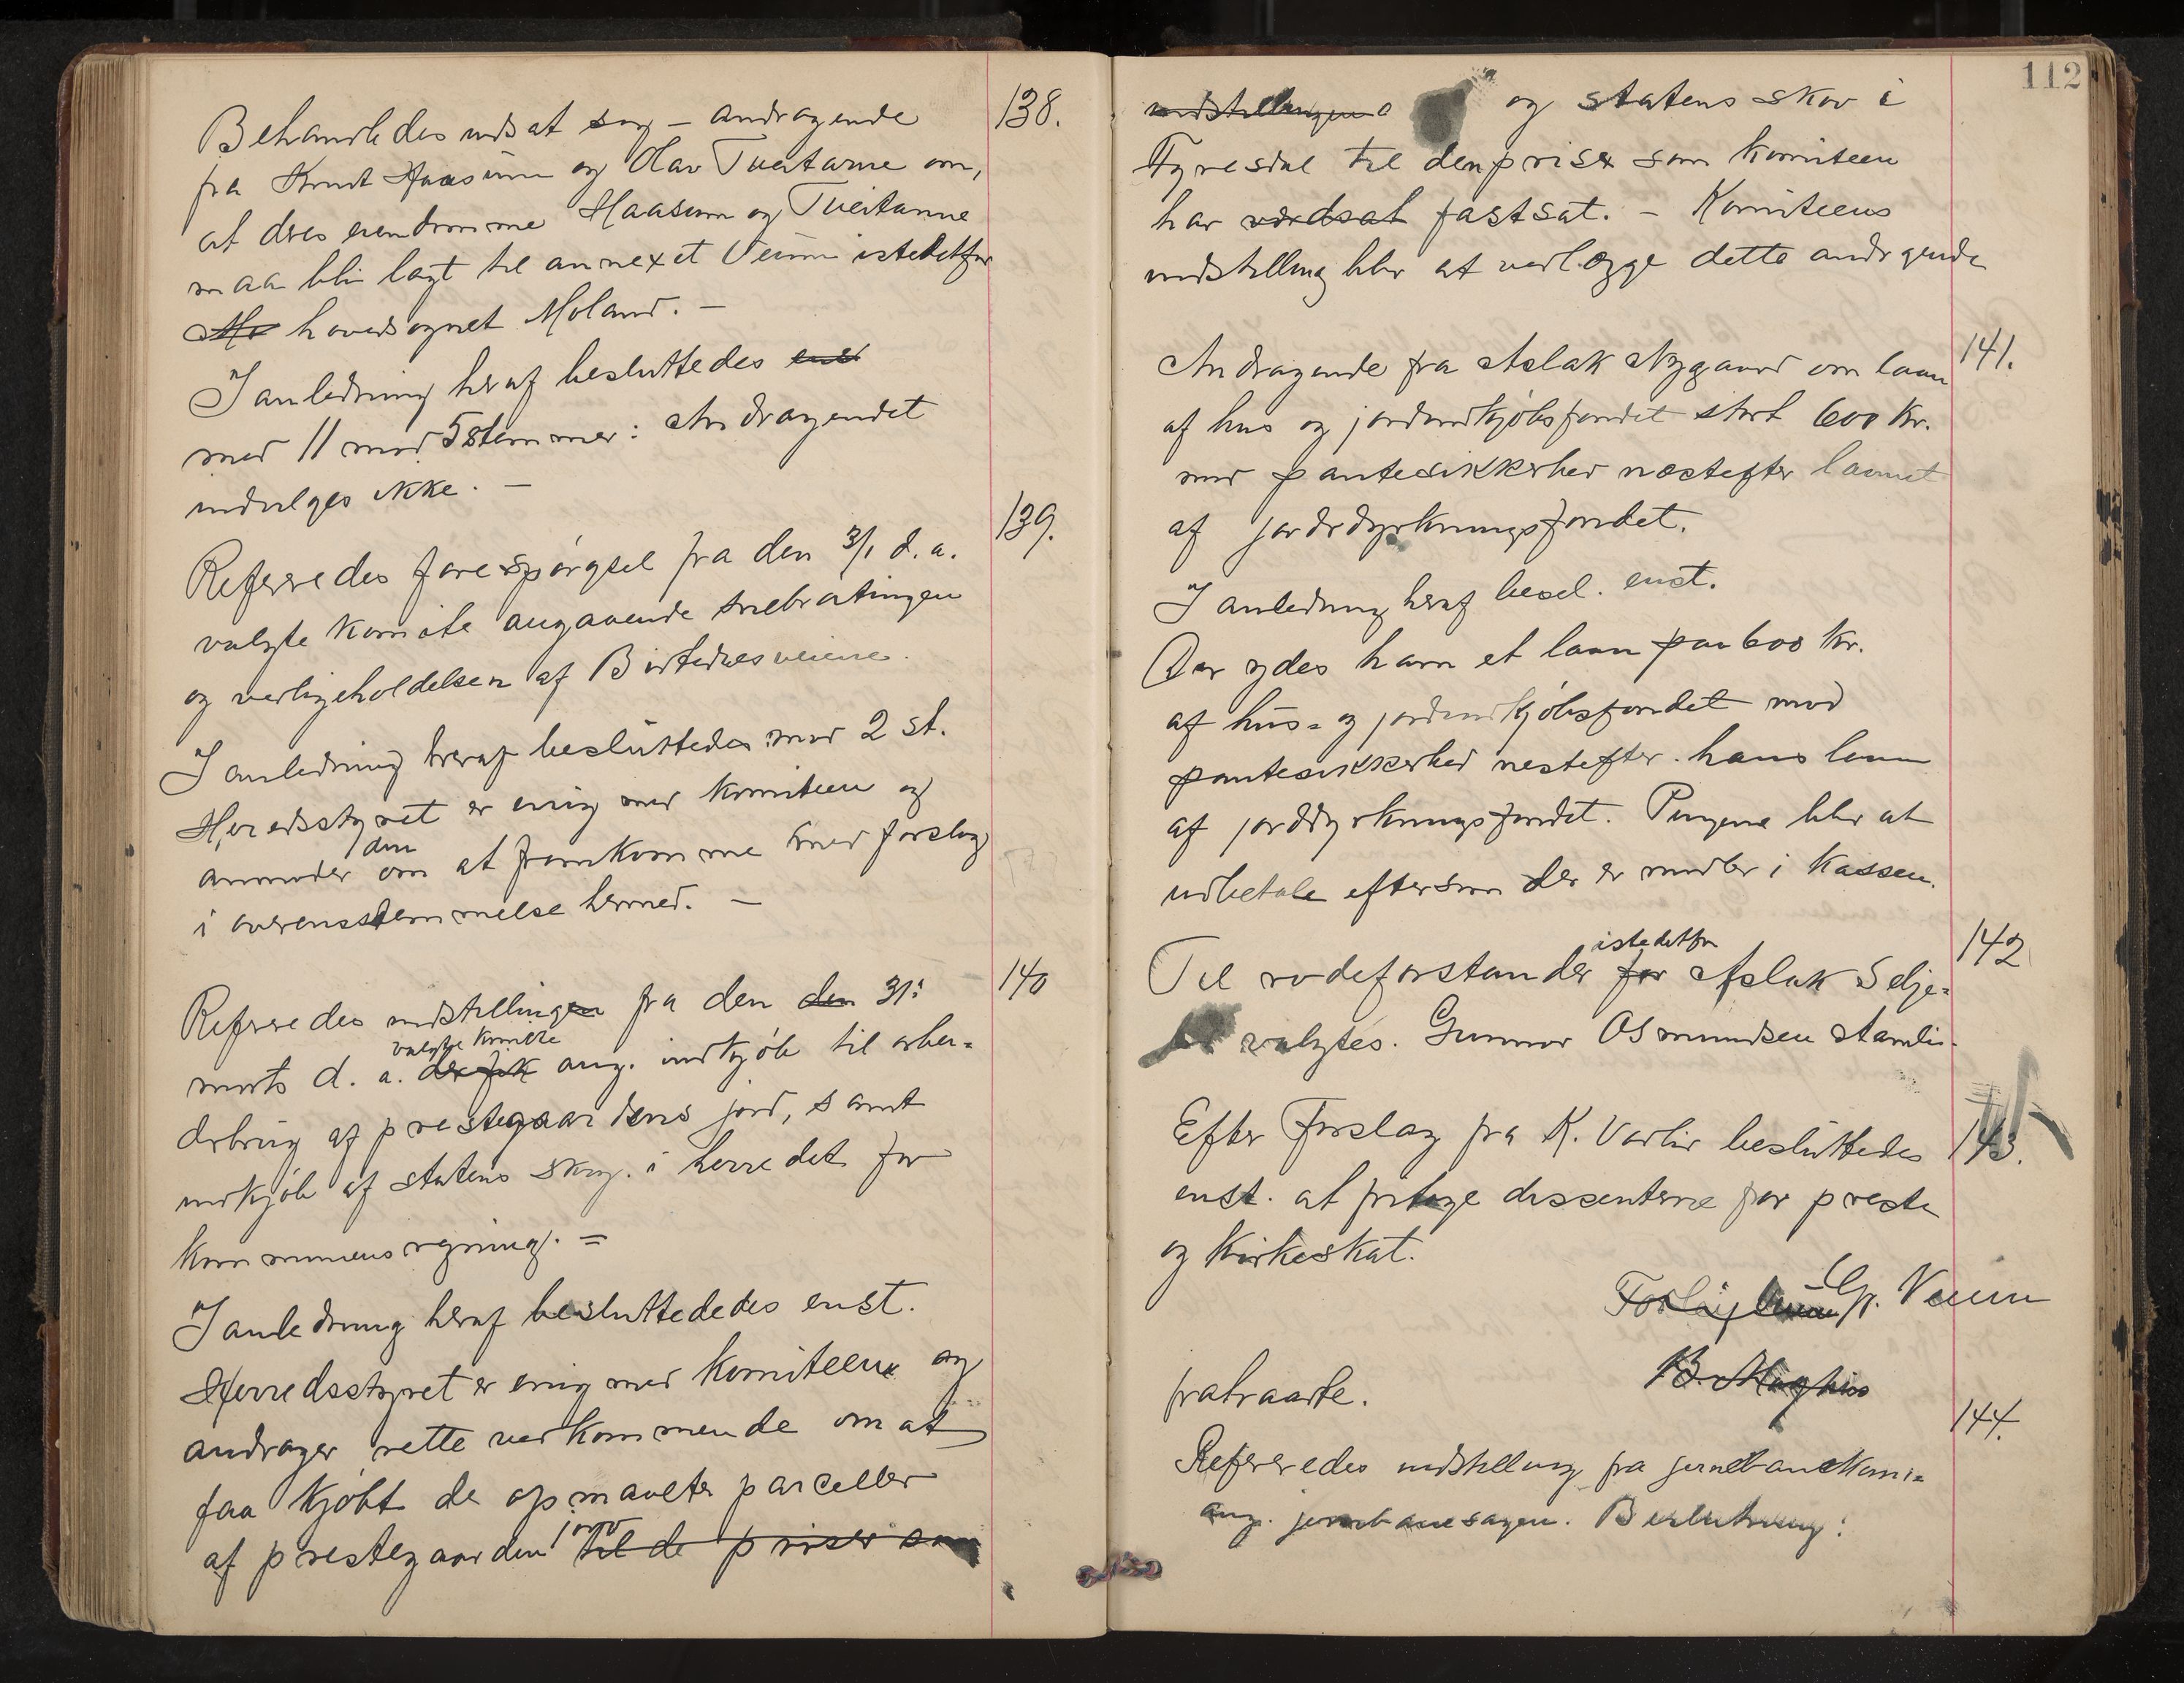 138.
Behandledes udsat sag - andragende
fra Knut Haasum og Olav Tveitanne om,
at deres eiendomme Haasum og Tveitanne
maa bli lagt til annexet Veum istedetfor
Mo hovedsognet Moland. -
I anledning heraf besluttedes enst
med 11 mod 5 stemmer: Andragendet
indvilges ikke. -
139.
Refereredes forespørgsel fra den 3/1 d. a.
valgte komite angaaende snebrøtingen
og vedligeholdelsen af Birtedalsveiene.
I anledning heraf besluttedes mod 2 st.
Heredsstyret er enig med komiteen og
anmoder den om at fremkomme med forslag
i overensstemmelse hermed. -
140
Refereredes indstillingen fra den den 31:
marts d. a. valgte komite ang. indkjøb til arbei=
derbrug af prestegaardens jord, samt
indkjøb af statens skog. i herredet for
kommunens regning. =
I anledning heraf besluttededes enst.
Herredsstyret er enig med komiteen og
andrager rette vedkommende om at
faa kjøbt de opmaalte parceller
af prestegaardens jord til de priser som
112
indstillingen a og statens skov i
Fyresdal til den priser som komiteen
har værdsat fastsat. - Komiteens
indstilling blir at vedlægge dette andragende
141.
Andragende fra Aslak Nygaard om laan
af hus og jordindkjøbsfondet stort 600 kr.
mod pantesikkerhed næstefter laanet
af jorddyrkningsfondet.
I anledning heraf besl. enst.
Der ydes ham et laan paa 600 kr.
af hus= og jordindkjøbsfondet mod
pantesikkerhed nestefter hans laan
af jorddyrkningsfondet. Pengene blir at
udbetale eftersom der er midler i kassen.
142
Til rodeforstander for istedetfor Aslak Selje=
valgtes. Gunnar Osmundsen
143.
Efter Forslag fra K. Varlir besluttedes
enst. at fritage dissenterne for preste
og kirkeskat.
Veum
fratraadte.
144.
Refereredes indstilling fra jernebanekomi=
ang. jernbanesagen. Beslutning: